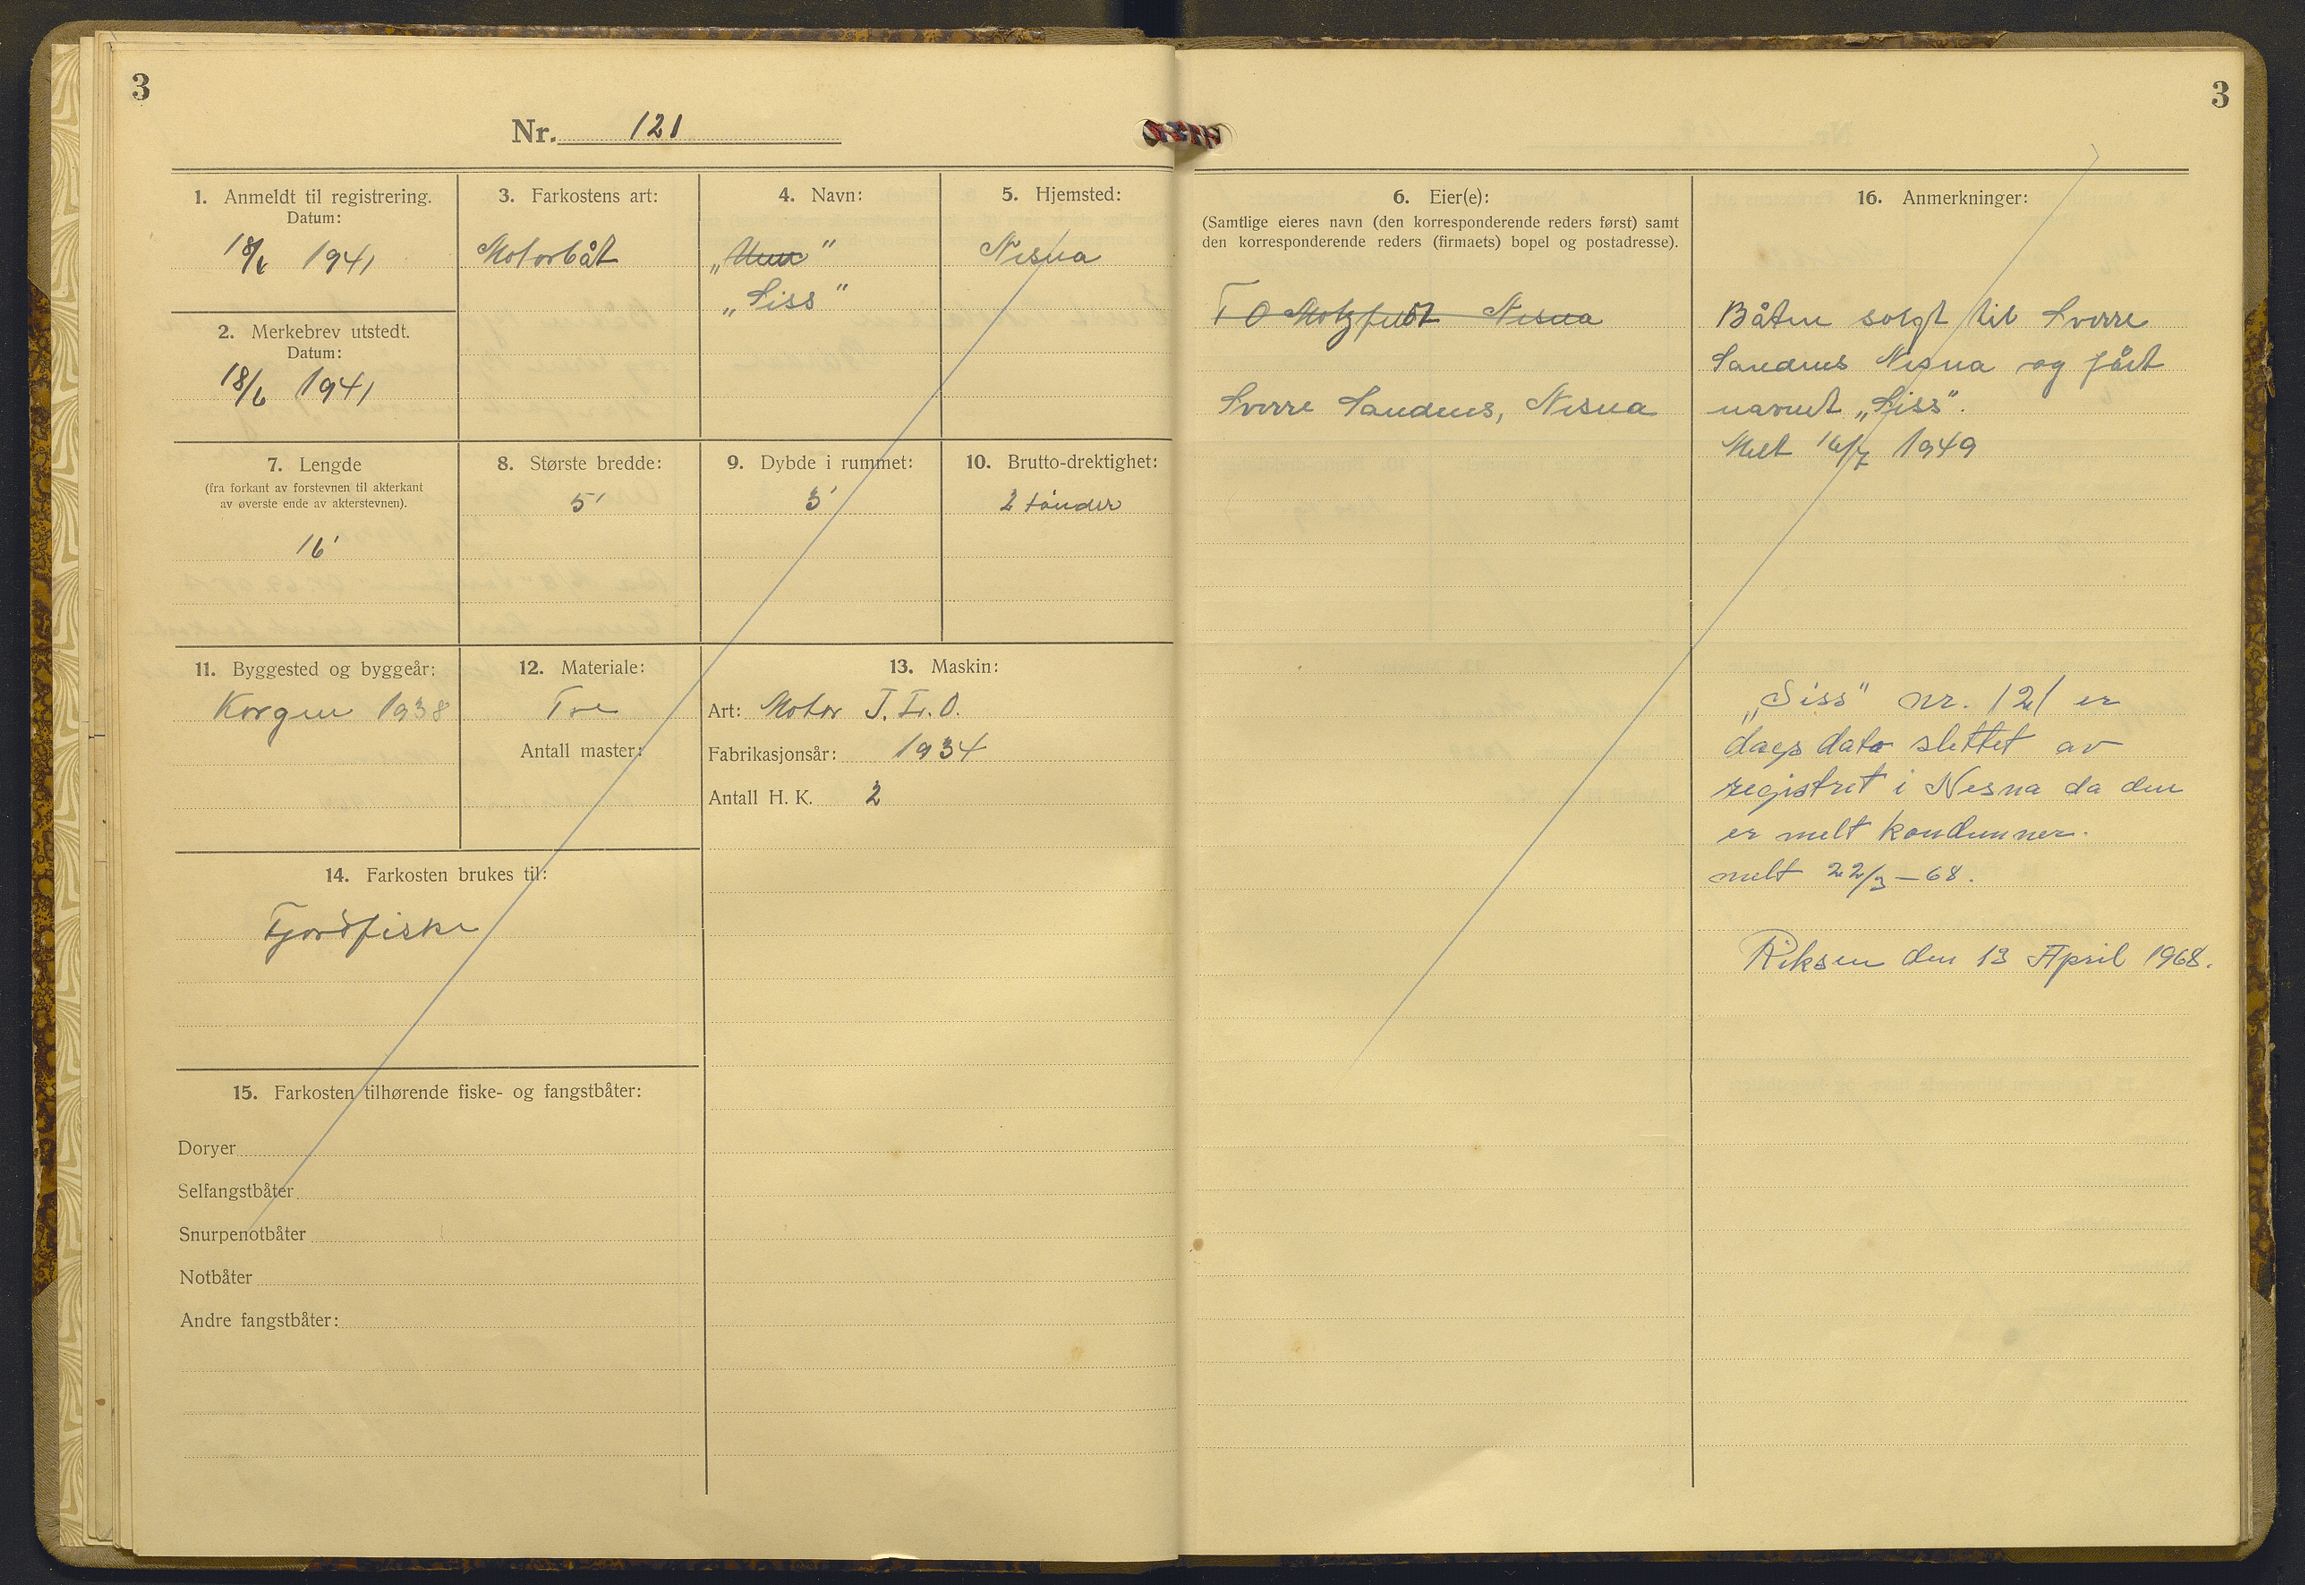 3
Nr. 121
1. Anmeldt til registrering.
Datum:
18/6 1941
2. Merkebrev utstedt.
Datum:
18/6 1941
3. Farkostens art:
Motorbåt
4. Navn:
„Siss"
5. Hjemsted:
Nesna
7. Lengde
(fra forkant av forstevnen til akterkant
av øverste ende av akterstevnen).
16'
8. Største bredde:
5'
9. Dybde i rummet:
3'
10. Brutto-drektighet:
2 tønder
11. Byggested og byggeår:
Korgen 1938
12. Materiale:
Tre
Antall master:
13. Maskin:
Art: Motor J. Fr. O.
Fabrikasjonsår: 1934
Antall H. K. 2
14. Farkosten brukes til:
Fjordfiske
15. Farkosten tilhørende fiske- og fangstbåter:
Doryer
Selfangstbåter
Snurpenotbåter
Notbåter
Andre fangstbåter:
3
6. Eier(e):
(Samtlige eieres navn (den korresponderende reders først) samt
den korresponderende reders (firmaets) bopel og postadresse).
T O Motzfeldt Nesna
Sverre Sandnes, Nesna
16. Anmerkninger:
Båten solgt til Sverre
Sandnes Nesna og fået
navnet „Siss".
Melt 16/7 1949
„Siss" nr. 121 er
dags dato slettet av
registret i Nesna da den
er melt kondemner.
melt 22/3 – 68.
den 13 April 1968.